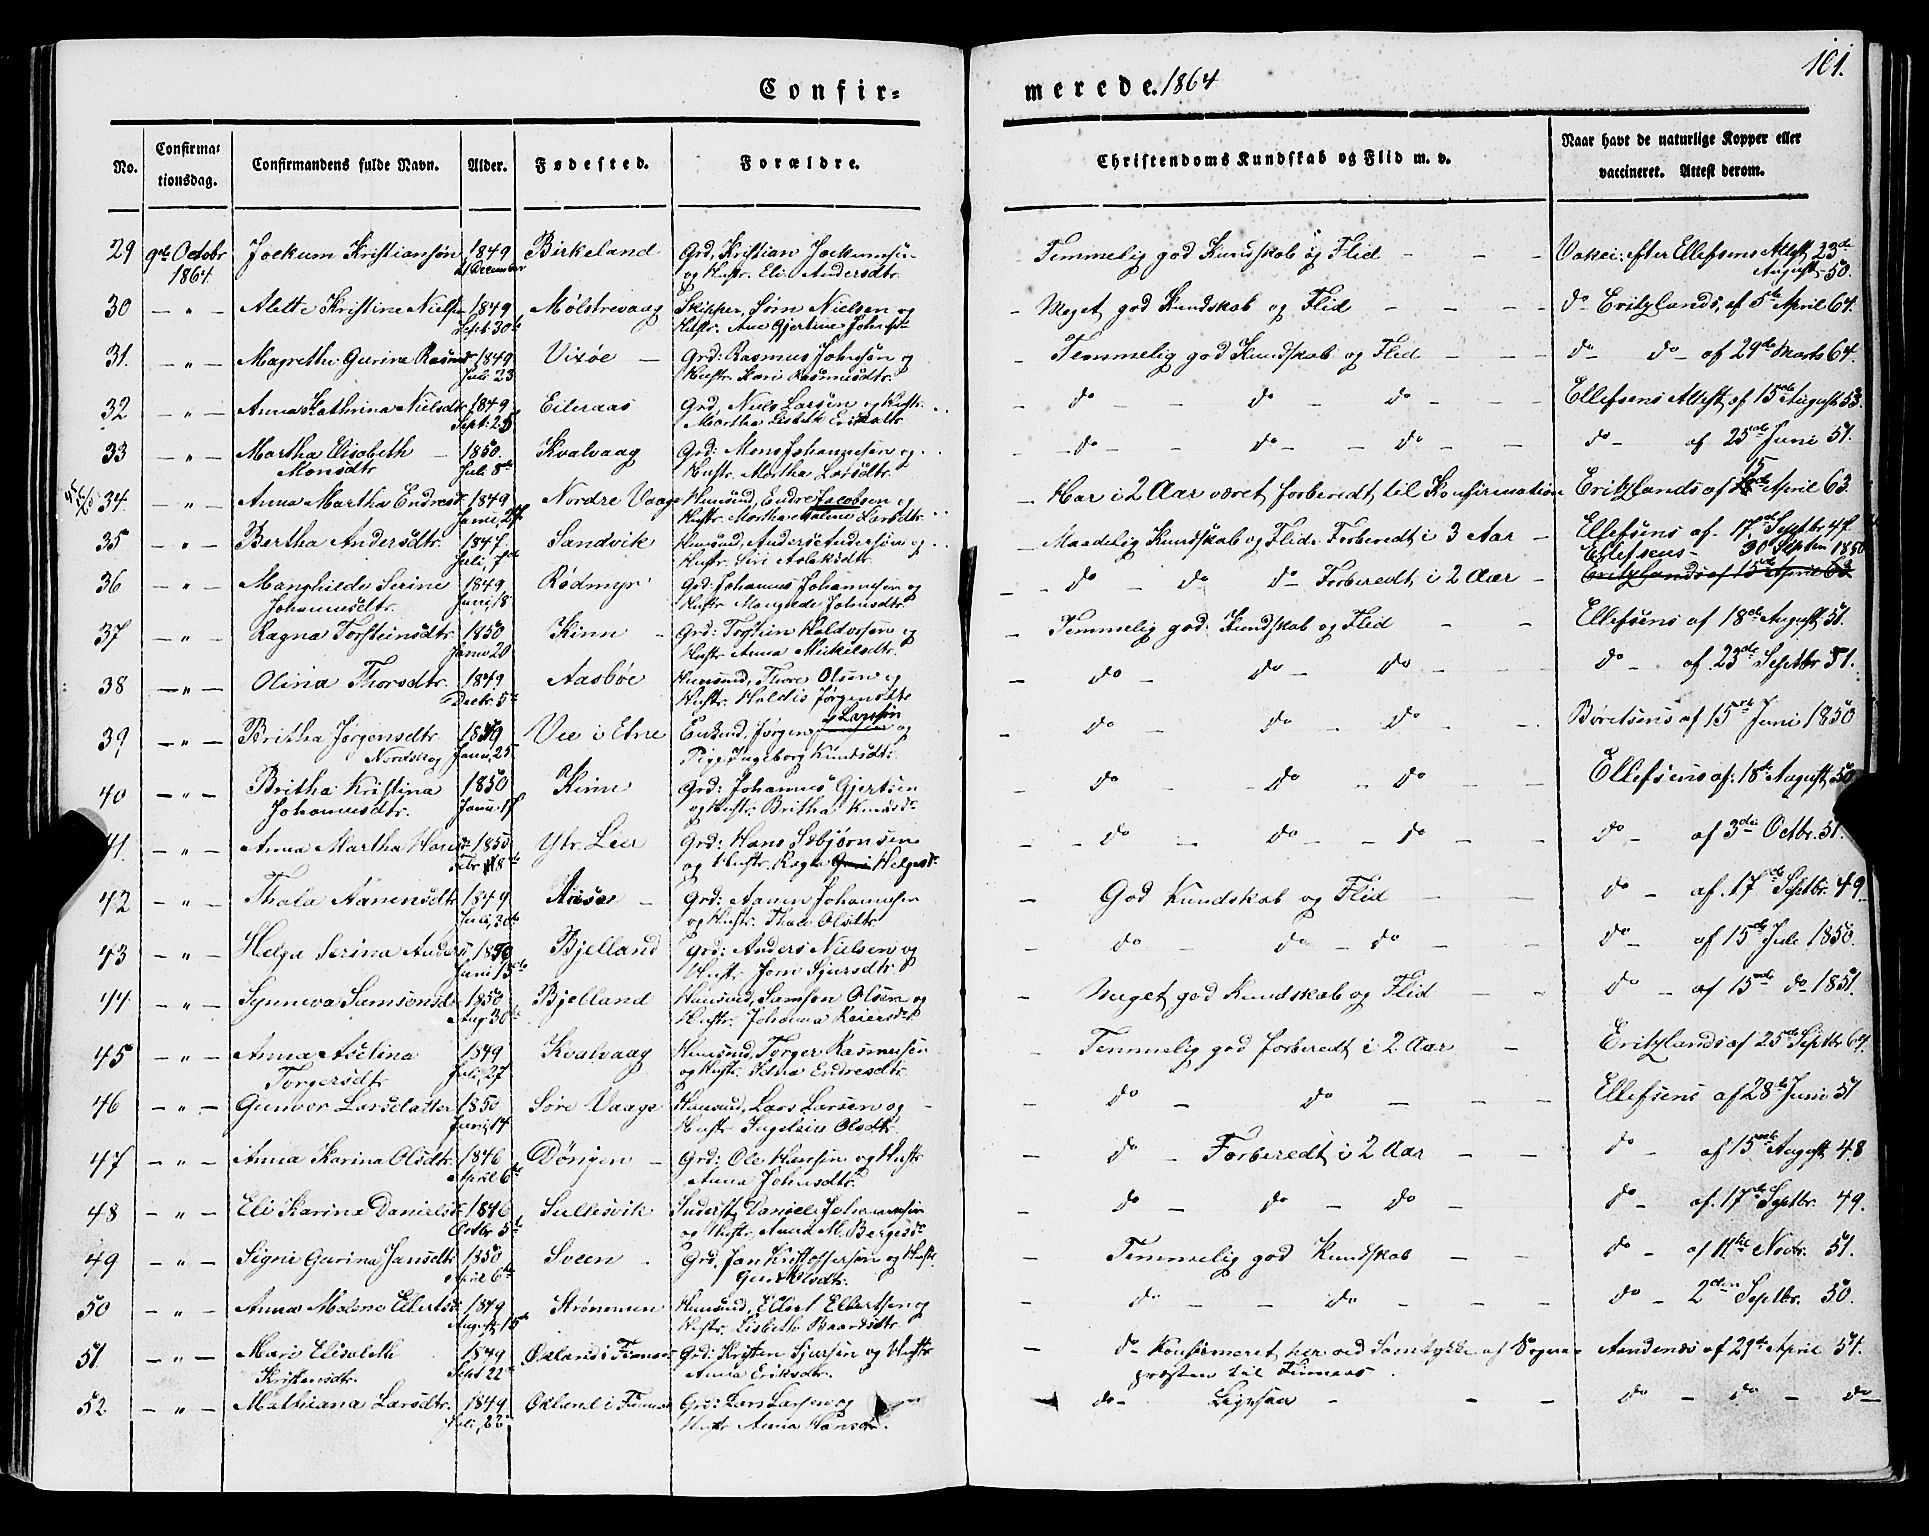 101.
Confir= merede. 1864
No. Confirma= tionsdag. Confirmandens fulde Navn. Alder. Fødested. Forældre. Christendoms Kundskab og Flid m. v. Naar havt de naturlige Kopper eller vaccineret. Attest derom.
29 9de Octobr Jockum Kristiansøn 1849 Birkeland Grd, Kristian Jockumsen Temmelig god Kundskab og Flid - - - Vakci: efter Ellefsens Attest 23de
1864. 21 December og Hustr. Eli Andersdtr. August 50.
30 - " - Alette Kristine Nielsen 1849 Mølstrevaag Skipper, Sørn Nielsen og - Meget god Kundskab og Flid - - - do Eritzlands, af 5te April 64.
Sept 30te Hustr. Ane Gjertine Johns
31. - " - Magrethe Gurine Rasmus 1849 Vixøe - Grd: Rasmus Johnsen og - Temmelig god Kundskab og Flid - - - do - do - af 29de Marts 64.
Juli 23 Hustr. Kari Rasmusdtr.
32 - " - Anna Kathrina Nielsdtr 1849 Eileraas Grd, Niels Larsen og Hustr. - do - do - do - - Ellefsens Attest af 15de August 53.
Sept: 25 Martha Lisbeth Eriksdtr
33 - " - Martha Elisabeth - 1850. Kvalvaag Grd: Mons Johannesen og - do - do - do - - do - af 25de Juni 51.
Monsdtr Juli 8de Hustr. Martha Larsdtr.
34. - " - Anna Martha Endresd 1849 Nordre Vaage Huusmd, Endre Jacobsen og - Har i 2 Aar været forberedt til Konfirmation Eritzlands af 15 April 63.
Janu, 27 Hustr. Martha Malene Larsdtr.
35 - " - Bertha Andersdtr. 1847 Sandvik Huusmd, Anders Andersøn og - Maadelig Kundskab og Flid. Forberedt i 3 Aar - Ellefsens af. 17de Septbr. 47.
Juli, 7de Hustr. Siri Aslaksdtr Ellefsens - 30 Septem 1850
36 - " - Manghilde Serine 1849 Rødmyr Grd: Johannes Johannesen og - do do do - Forberedt i 2 Aar - Eritzlands af 15de April 63
Johannesdtr. Juni, 18 Hustr. Mangrede Johnsdtr.
37 - " - Ragna Torsteinsdtr 1850 Kinn - Grd: Torstein Haldorsen og - Temmelig god Kundskab og Flid - - Ellefsens af 18de August 51.
Janu 20 Hustr. Anna Mickelsdtr.
38 - " - Olina Thorsdtr. 1849 Aasbøe Huusmd, Thore Olsen og - do - do - do - - do - af. 23de Septbr 51.
Decbr. 5te Hustr. Haldis Jørgensdtr
39 - " - Britha Jørgensdtr. 1849 Vee i Etne Larsen og - do - do - do - - Børetsens af 15de Juni 1850
Nordskog Janu, 25 Pige Ingeborg Knudsdtr.
40 - " - Britha Kristina 1850 Kinn Grd: Johannes Gjertsen - do - do do - - Ellefsens af: 18de August 50
Johannesdtr. Janu. 17 og Hustr. Britha Knudsd
41. - " - Anna Martha Hansd 1850 Ytr. Leer Grd: Hans Asbjørnsen - - do - do - do - - do - af 3die Octbr. 51.
Febr 18de og Hustr. Ragla Guri Helgesd
42 - " - Thala Aanensdtr 1849 Arise - Grd: Aanen Johannesen - God Kundskab og Flid - - do - af. 17de Septbr. 49.
Juli, 30te og Hustr. Thale Olsdtr.
43 - " - Helga Serina Anders 1850 Bjelland Grd: Anders Nielsen og - do - do - do - - do - af 15de Juli 1850.
Juni 15de Hustr. Jorn Sjursdtr.
44 - " - Synneva Samsonsdtr 1850 Bjelland Huusmd, Samson Olsen og - Meget god Kundskab og Flid - - do - af 15de do 1851.
Aug: 30te Hustr. Johanna Reiersdtr
45 - " - Anna Aselina 1849 Kvalvaag Huusmd, Torger Rasmussen - Temmelig god forberedt i 2 Aar - Eritzlands af 25de Septbr 64.
Torgersdtr Juli, 27 og Hustr. Edna Endresdtr.
46 - " - Gunvor Larsdatter 1850 Søre Vaage Huusmd, Lars Larsen og - - do - do - - - Ellefsens af 28de Juni 51
Juni, 14 Hustr Ingeleiv Olsdtr.
47 - " - Anna Karina Olsdtr. 1846 Døngen - Grd: Ole Hansen og Hustr - do Forberedt i 2 Aar - - do - af 15de August 48
April 6te Anna Johnsdtr.
48 - " - Eli Karina Daniels 1846 Sullesvik Inderst Daniel Johannesen - do - do - do - do - af. 17de Septbr. 49.
Octbr 5te og Hustr. Anna M. Bergesd
49 - " - Signe Gurina Jansdtr 1850 Sveen - Grd, Jan Kristoffersen og Hustr - Temmelig god Kundskab - - do - af 11te Novbr. 51.
April 6te Guri Olsdtr.
50 - " - Anna Malene Eilertsd 1849 Strømmen Huusmd, Eilert Ellertsen og - do - - do - - - do - 2den Septbr. 50.
August 15de Hustr. Lisbeth Baardsdtr
51 - " - Mari Elisabeth 1849 Økland i Finnaas Grd: Kristen Sjursen og Hustr - do Konfirmeret her ved Samtykke af Sogne= Aandenes af 29de April 51.
Kristensdtr. Sept 22de Anna Eriksdtr. præsten til Finnaas.
52. - " - Mathiana Larsdtr. 1849 Økland i Finnaas Grd: Lars Larsen og do - Ligesaa - - - do - do - do -
Juli, 22 Hustr Anna Hansdtr.